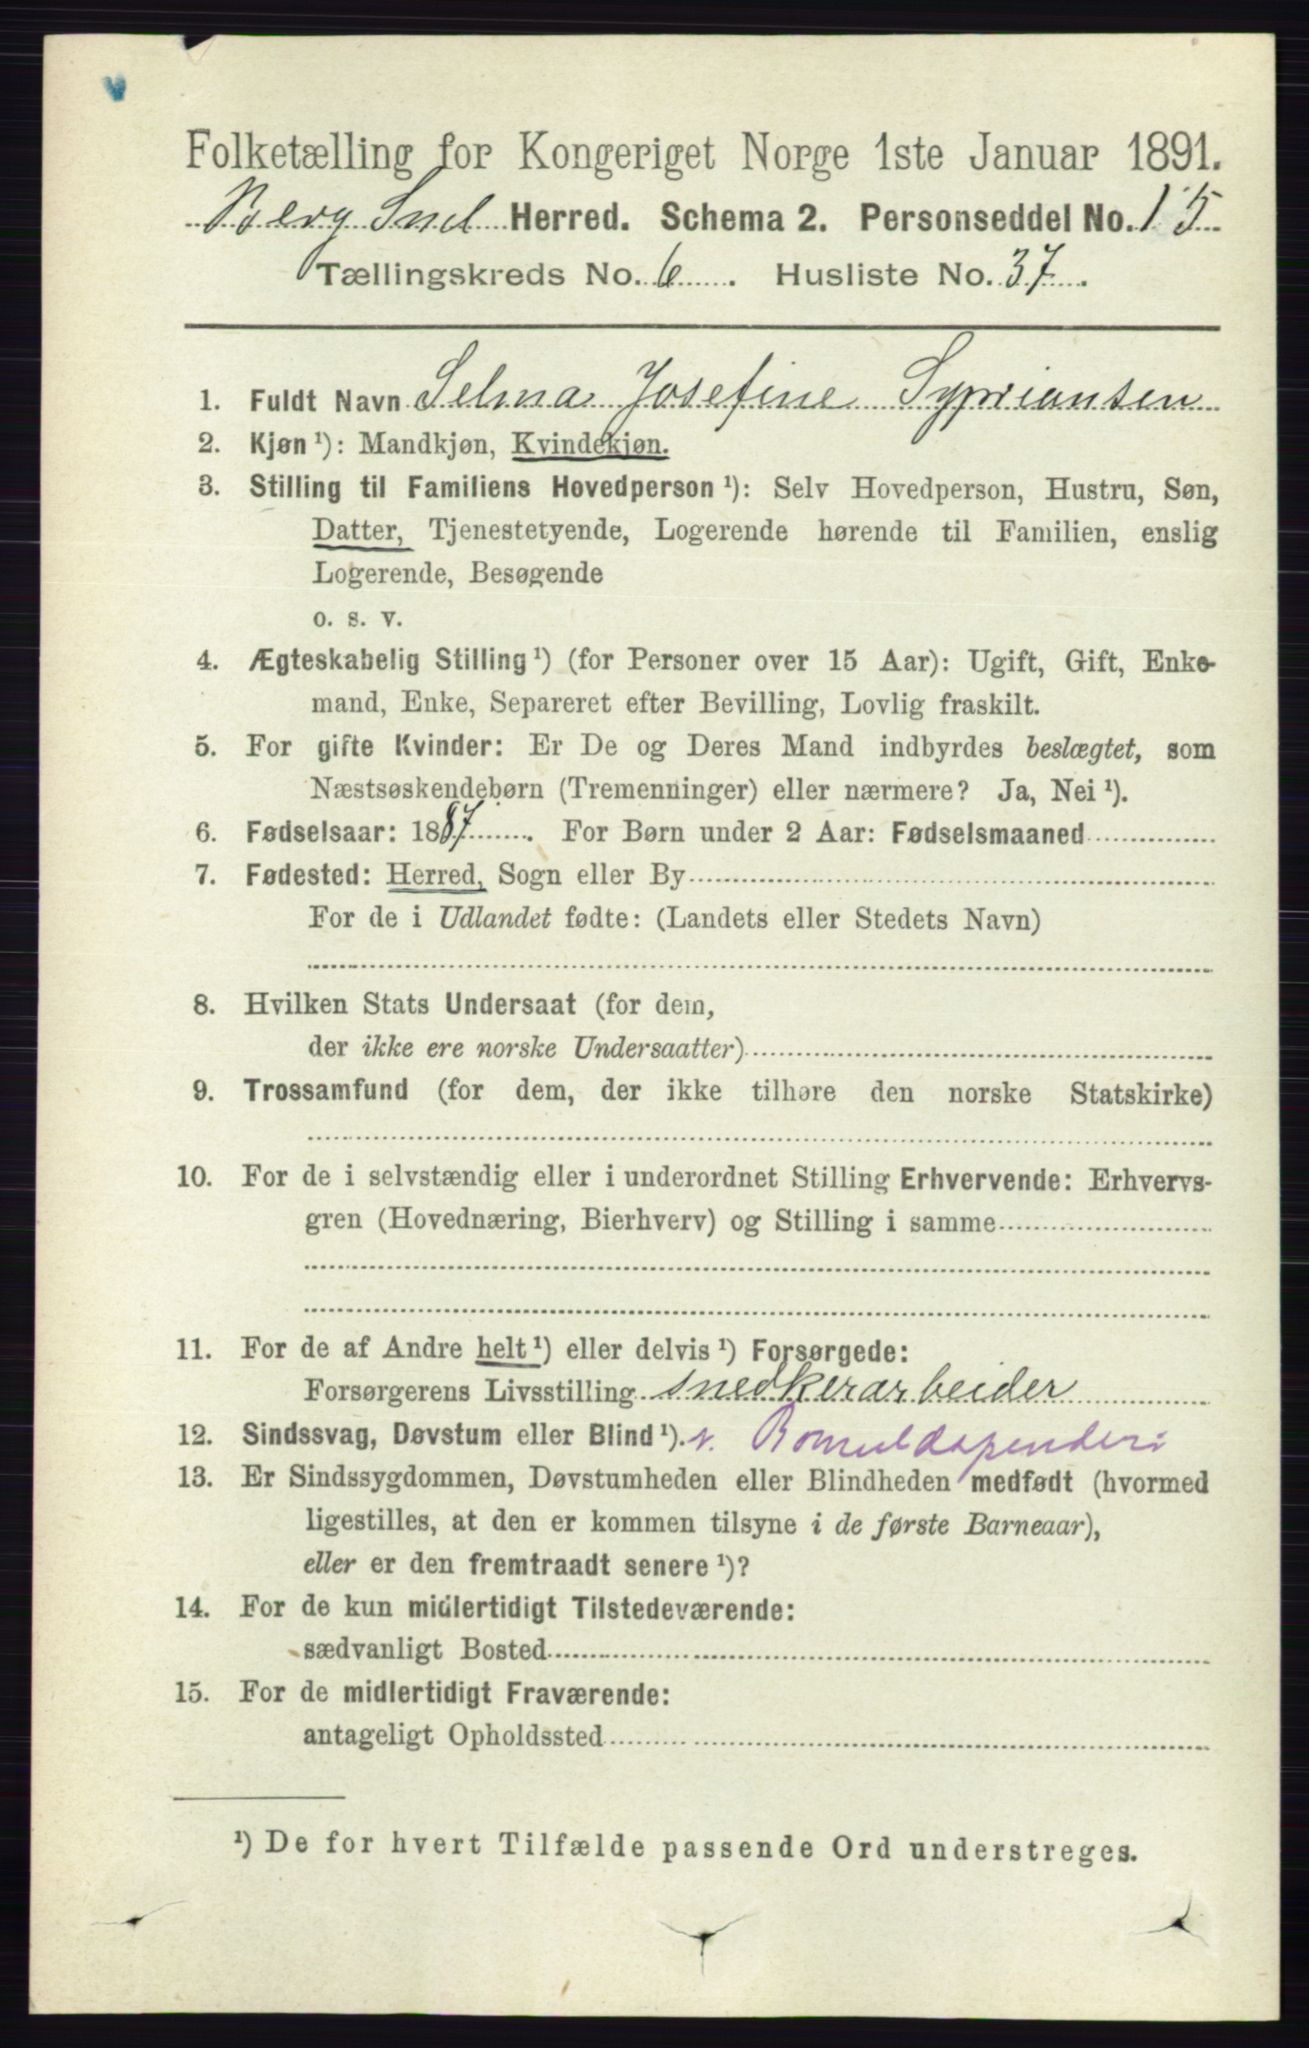 Folketælling for Kongeriget Norge 1ste Januar 1891.
Berg Herred. Schema 2. Personseddel No. 15
Tællingskreds No. 6. Husliste No. 37.
1. Fuldt Navn Selma Josefine Sypriansen
2. Kjøn ¹): Mandkjøn, Kvindekjøn.
3. Stilling til Familiens Hovedperson ¹): Selv Hovedperson, Hustru, Søn,
Datter, Tjenestetyende, Logerende hørende til Familien, enslig
Logerende, Besøgende
o. s. v.
4. Ægteskabelig Stilling ¹) (for Personer over 15 Aar): Ugift, Gift, Enke-
mand, Enke, Separeret efter Bevilling, Lovlig fraskilt.
5. For gifte Kvinder: Er De og Deres Mand indbyrdes beslægtet, som
Næstsøskendebørn (Tremenninger) eller nærmere? Ja, Nei ¹).
6. Fødselsaar: 1887. For Børn under 2 Aar: Fødselsmaaned
7. Fødested: Herred, Sogn eller By
For de i Udlandet fødte: (Landets eller Stedets Navn)
8. Hvilken Stats Undersaat (for dem,
der ikke ere norske Undersaatter)
9. Trossamfund (for dem, der ikke tilhøre den norske Statskirke)
10. For de i selvstændig eller i underordnet Stilling Erhvervende: Erhvervs-
gren (Hovednæring, Bierhverv) og Stilling i samme
11. For de af Andre helt ¹) eller delvis ¹) Forsørgede:
Forsørgerens Livsstilling snedkerarbeider
12. Sindssvag, Døvstum eller Blind ¹).
13. Er Sindssygdommen, Døvstumheden eller Blindheden medfødt (hvormed
ligestilles, at den er kommen tilsyne i de første Barneaar),
eller er den fremtraadt senere ¹)?
14. For de kun midlertidigt Tilstedeværende:
sædvanligt Bosted
15. For de midlertidigt Fraværende:
antageligt Opholdssted
¹) De for hvert Tilfælde passende Ord understreges.